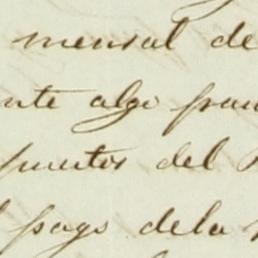 mensal de
nte algo fran
puertos del
pago dela